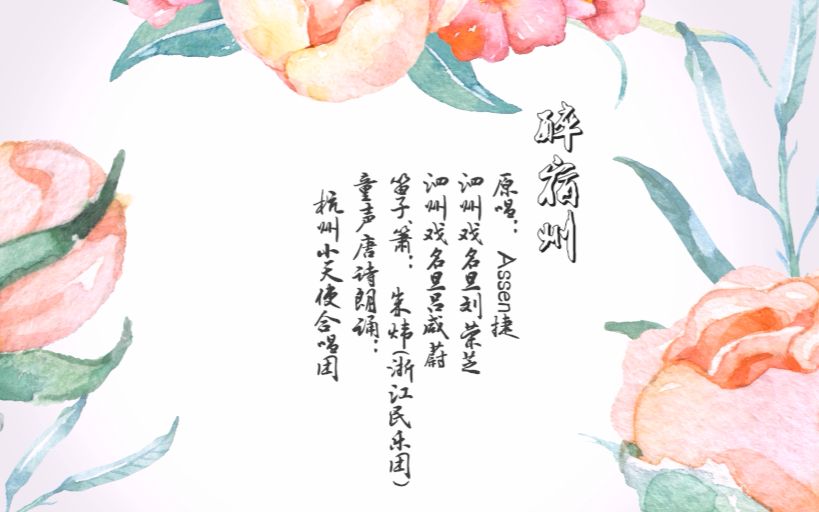 醉宿州
原唱：Assen捷
泗州戏名旦刘荣芝
泗州戏名旦吕威蔚
笛子、箫：朱炜(浙江民乐团)
童声唐诗朗诵：
杭州小天使合唱团